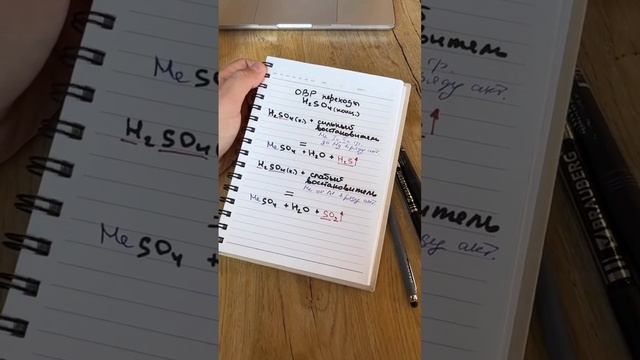 ОВР переходы
H2SO4 (конц.)
H2SO4(к.) + сильный
восстановитель
до Mg в ряду акт.
=
MeSO4 + H2O + H2S↑
H2SO4(к.) + слабый
восстановитель
Me от Al в ряду акт.
=
MeSO4 + H2O + SO2↑
MeSO4
H2SO4(
=
MeSO4 +
витель
ряду акт.
↑
витель
ряду акт.
BRAUBERG